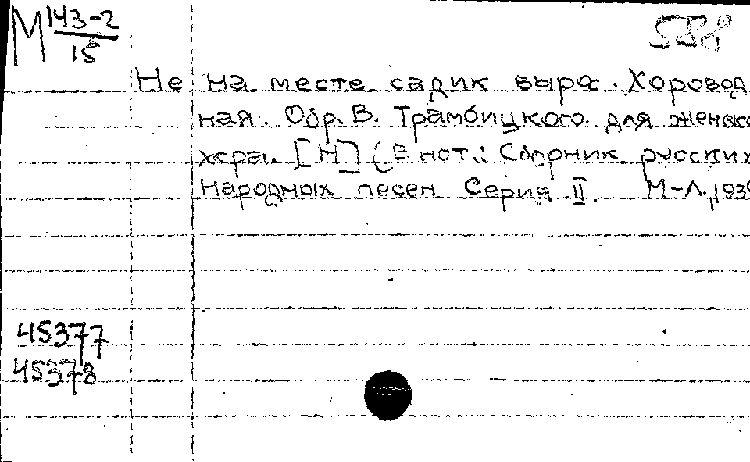 М 143-2
15
558
Не на месте садик вырос. Хоровод
ная. Обр. В. Трамбицкого для женско
хора. [Н] (В нот.: Сборник русских
народных песен Серия II. М-Л, 193
45377
45378